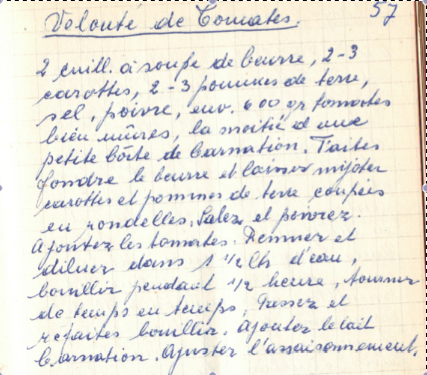 Velouté de Tomates. 57
2 cuill. à soupe de beurre, 2-3
carottes, 2-3 pommes de terre,
sel, poivre, env. 600 gr tomates
bien mûres, la moitié d'une
petite boîte de Carnation. Faites
fondre le beurre et laisser mijoter
carottes et pommes de terre coupées
en rondelles. Salez et poivrez.
Ajoutez les tomates. Remuer et
diluer dans 1 1/2 lt d'eau,
bouillir pendant 1/2 heure, tourner
de temps en temps, Passez et
refaites bouillir. Ajouter le lait
Carnation. Ajuster l'assaisonnement.